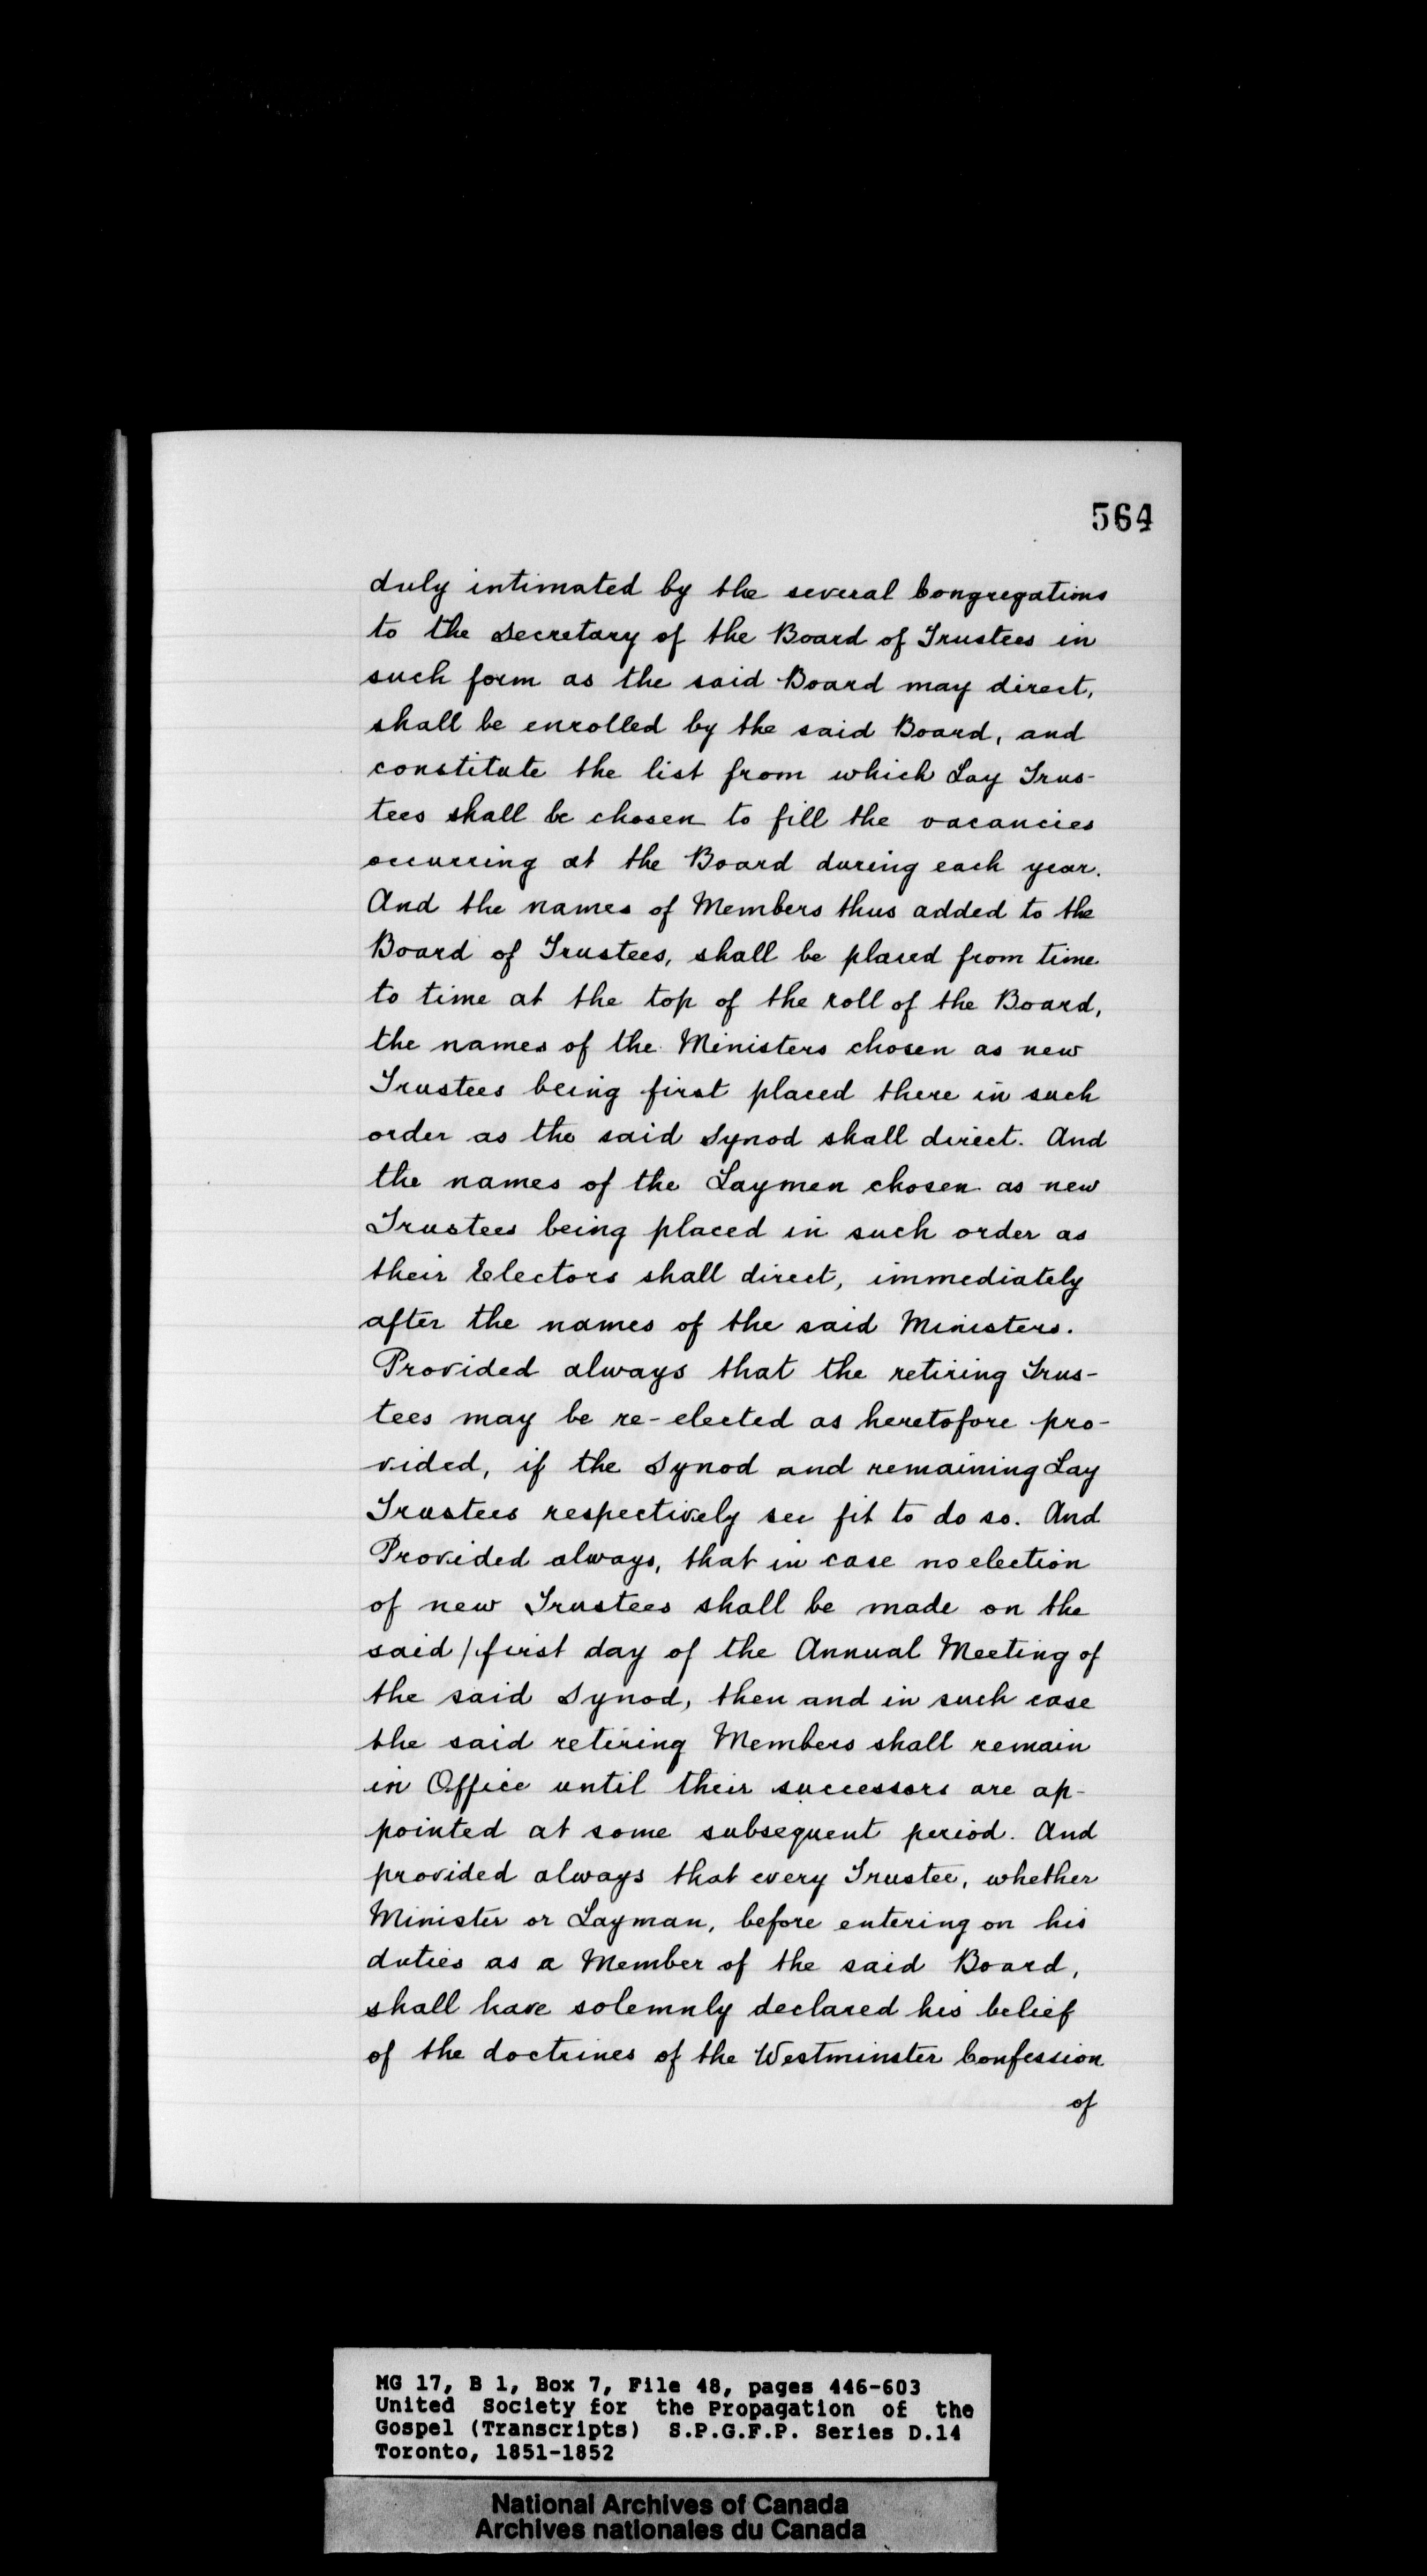 564
duly intimated by the several Congregations
to the Secretary of the Board of Trustees in
such form as the said Board may direct,
shall be enrolled by the said Board, and
constitute the list from which Lay Trus-
tees shall be chosen to fill the vacancies
occurring at the Board during each year.
And the names of Members thus added to the
Board of Trustees, shall be placed from time
to time at the top of the roll of the Board,
the names of the Ministers chosen as new
Trustees being first placed there in such
order as the said Synod shall direct. And
the names of the Laymen chosen as new
Trustees being placed in such order as
their Electors shall direct, immediately
after the names of the said Ministers.
Provided always that the retiring Trus-
tees may be re-elected as heretofore pro-
vided, if the Synod and remaining Lay
Trustees respectively see fit to do so. And
Provided always, that in case no election
of new Trustees shall be made on the
said / first day of the Annual Meeting of
the said Synod, then and in such case
the said retiring Members shall remain
in Office until their successors are ap-
pointed at some subsequent period. And
provided always that every Trustee, whether
Minister or Layman, before entering on his
duties as a Member of the said Board,
shall have solemnly declared his belief
of the doctrines of the Westminster Confession
of
MG 17, B 1, Box 7, File 48, pages 446-603
United Society for the Propagation of the
Gospel (Transcripts) S.P.G.F.P. Series D.14
Toronto, 1851-1852
National Archives of Canada
Archives nationales du Canada